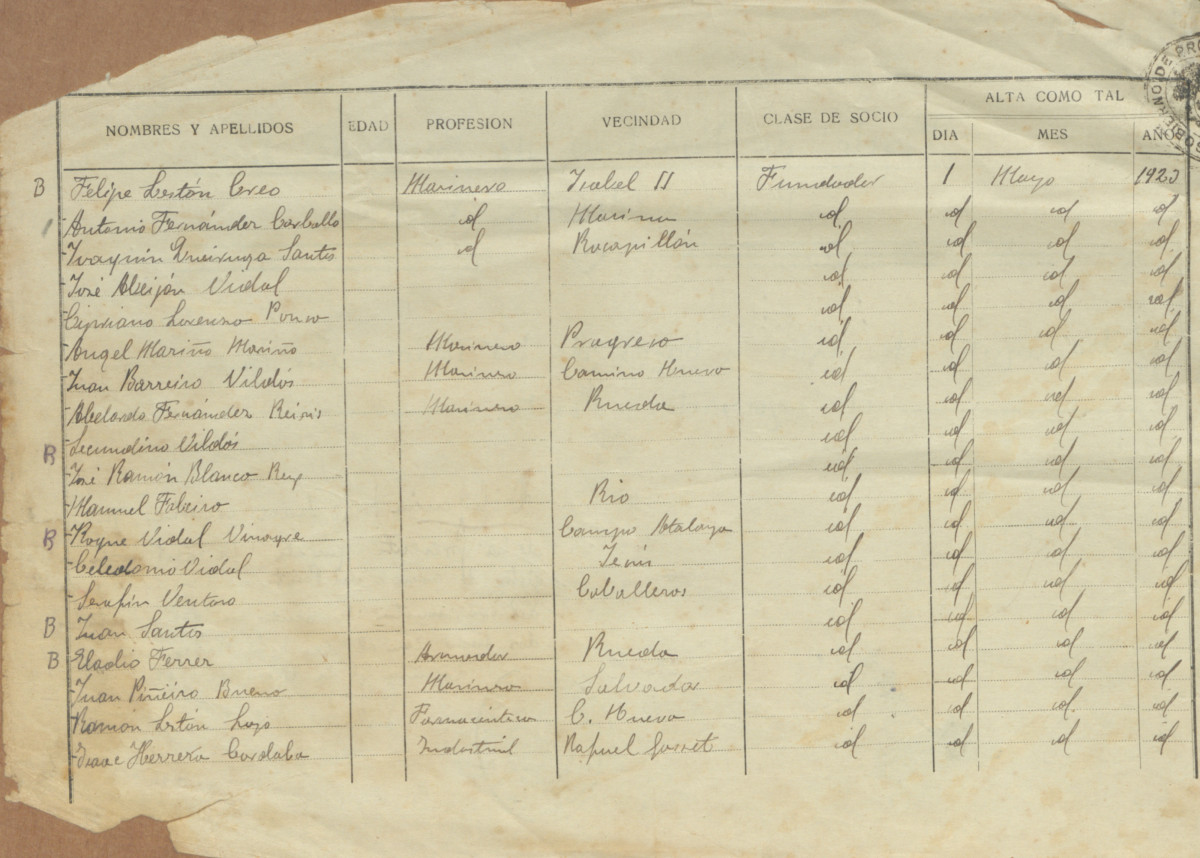 GOBIERNO DE PRO
ALTA COMO TAL
NOMBRES Y APELLIDOS EDAD PROFESION VECINDAD CLASE DE SOCIO DIA MES AÑO
B Felipe Lestón Creo Marinero Isabel II Fundador 1 Mayo 1923
Antonio Fernández Carballo id Marina id id id id
Joaquín Queiruga Santos id id id id id
José Abeijón Vidal id id id id
Cipriano Lorenzo id id id id
Angel Mariño Mariño Marinero Progreso id id id id
Juan Barreiro Vildós Marinero Camino Nuevo id id id id
Abelardo Fernández Marinero Rueda id id id id
B Secundino Vildós id id id id
José Ramón Blanco id id id id
Manuel Fabeiro Rio id id id id
B Roque Vidal Vinagre Campo Atalaya id id id id
Celedonio Vidal id id id id
Serafín Ventoso Caballeros id id id id
B Juan Santos id id id id
B Eladio Ferrer Armador Rueda id id id id
Juan Piñeiro Bueno Marinero Salvador id id id id
Ramon Lestón Lojo Farmacéutico C. Nueva id id id id
Isaac Herrera Cardaba Industrial id id id id